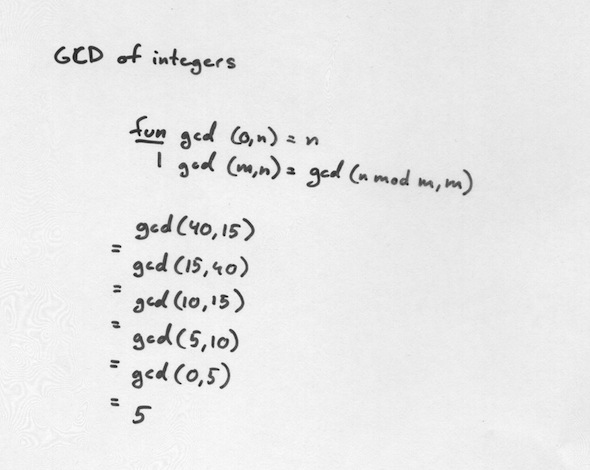 GCD of integers
fun gcd (0,n) = n
| gcd (m,n) = gcd (n mod m, m)
gcd (40,15)
= gcd (15,40)
= gcd (10,15)
= gcd (5,10)
= gcd (0,5)
= 5